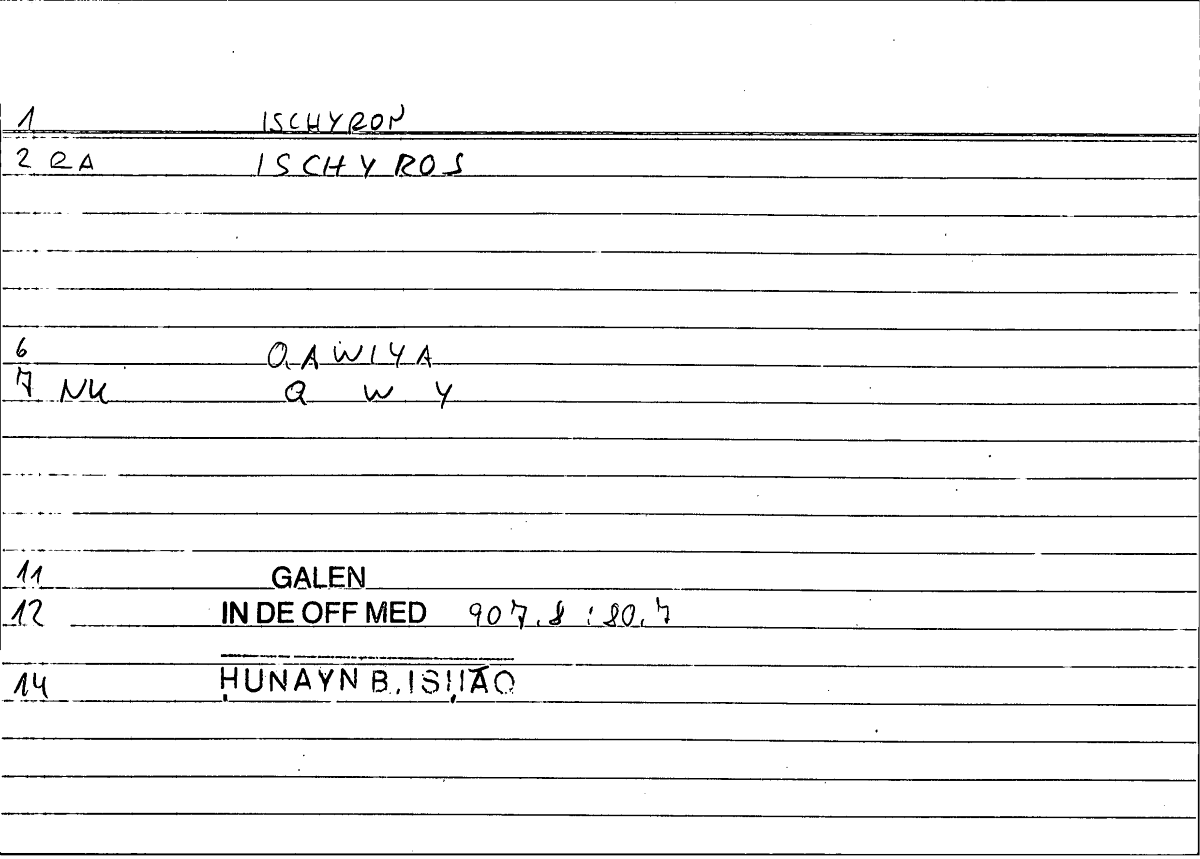 1 ISCHYRON
2 RA ISCHYROS
6 QAWIYA
7 NK Q W Y
11 GALEN
12 IN DE OFF MED 907.8 : 80.7
14 ḤUNAYN B. ISḤĀQ